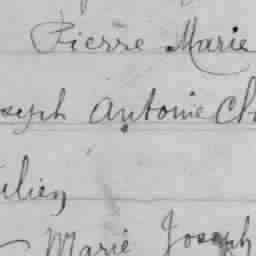 Pierre Marie
oseph Antoine Ch
ulien
Marie Joseph